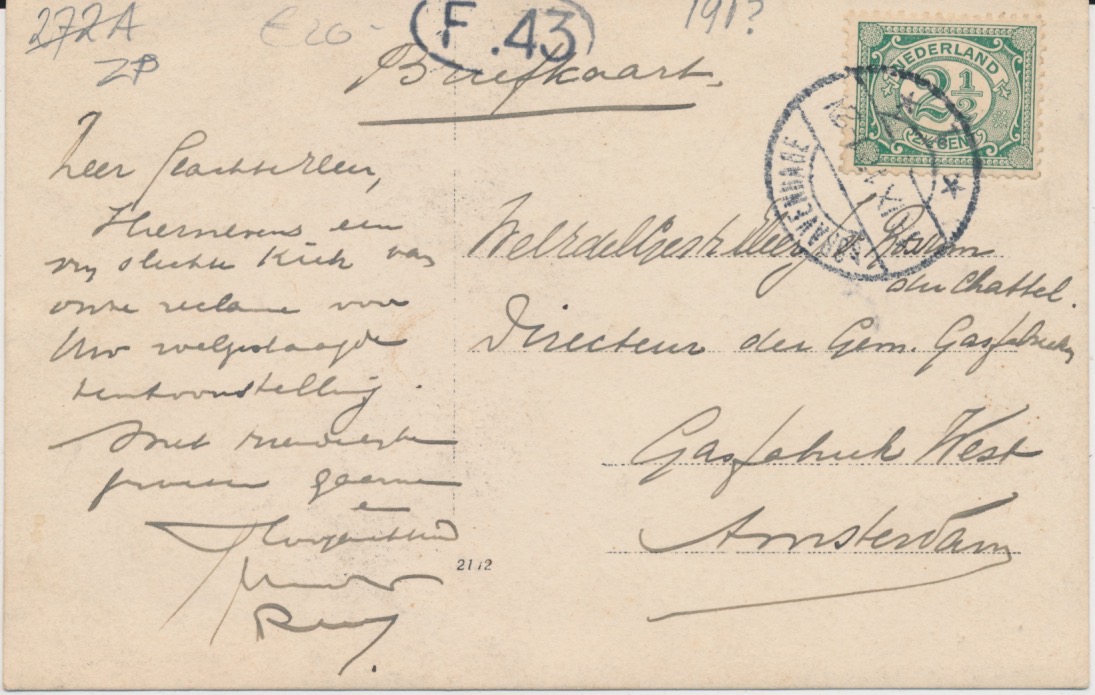 272A
ZP
€20-
F.43
191?
Briefkaart.
NEDERLAND
2½
CENT
'S-GRAVENHAGE
Zeer Geachte Heer,
Hiernevens een
vrij slechte Kiek van
onze reclame voor
Uw welgeslaagde
tentoonstelling.
Met vriendelijke
groeten gaarne
Hoogachtend
WelEdelGestr. Heer
den Chattel.
Directeur der Gem. Gasfabrieken
Gasfabriek West
Amsterdam
2112